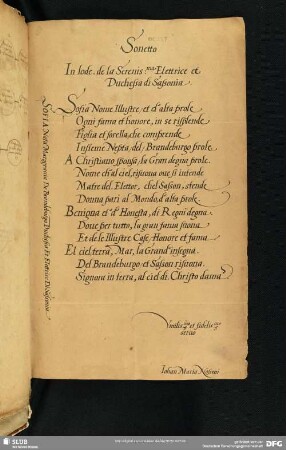 Sonetto
In lode de la Sereniss.ma Elettrice et
Duchessa di Sassonia
Sofia Nome Illustre et d'alta prole
Ogni fama et honore, in se risplende
Figlia et sorella, che comprende
Insieme Nepota, del Brandeburgo prole
A Christiano sposa, la Gran degna prole
Nome ch'al ciel, risuona ove si intende
Matre del Elettor, chel Sason, stende
Donna pari al Mondo, d'alta prole
Benigna et d' Honesta, di Regni degna
Dove per tutto, la gran fama suona
Et de le Illustre Case, Honore et fama
El ciel, terra, Mar, la Grand' insegna
Del Brandeburgo et Sasson risuona
Signora in terra, al ciel di Christo dama
SOFIA Nata Marggravia De Brandeburgo Duchessa Et Eletrice Di Sassonia
Humilis.mo et fidelis.mo
Johan Maria Nosseni
SLUB
DFG